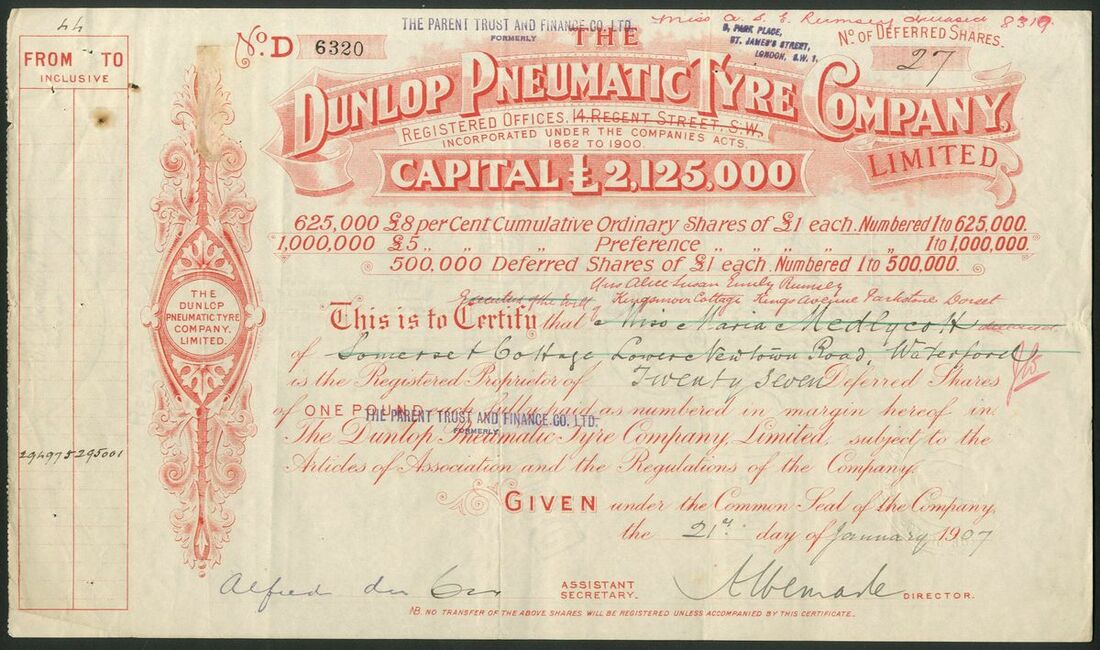 44
FROM TO
INCLUSIVE
294975 295001
No. D 6320
THE PARENT TRUST AND FINANCE.CO. LTD.
FORMERLY
Miss A. S. E. Rumsey 8319
5, PARK PLACE,
ST. JAMES'S STREET,
LONDON, S.W. 1.
No. OF DEFERRED SHARES.
27
THE
DUNLOP PNEUMATIC TYRE COMPANY,
LIMITED
REGISTERED OFFICES. 14. REGENT STREET. S.W.
INCORPORATED UNDER THE COMPANIES ACTS.
1862 TO 1900.
CAPITAL £ 2,125,000
625,000 £8 per Cent Cumulative Ordinary Shares of £1 each. Numbered 1 to 625,000.
1,000,000 £5 „ „ „ Preference „ „ „ „ 1 to 1,000,000.
500,000 Deferred Shares of £1 each. Numbered 1 to 500,000.
Miss Alice Susan Emily Rumsey
Executor of the will of Kingsmoor Cottage Kings Avenue Parkstone Dorset
This is to Certify that Miss Maria Medlycott deceased
of Somerset Cottage Lower Newtown Road, Waterford
is the Registered Proprietor of Twenty Seven Deferred Shares
of ONE POUND as numbered in margin hereof in
THE PARENT TRUST AND FINANCE.CO. LTD.
FORMERLY
The Dunlop Pneumatic Tyre Company, Limited, subject to the
Articles of Association and the Regulations of the Company.
GIVEN under the Common Seal of the Company,
the 21st day of January 1907
THE
DUNLOP
PNEUMATIC TYRE
COMPANY.
LIMITED.
Alfred du Cros
ASSISTANT
SECRETARY.
DIRECTOR.
NB. NO TRANSFER OF THE ABOVE SHARES WILL BE REGISTERED UNLESS ACCOMPANIED BY THIS CERTIFICATE.